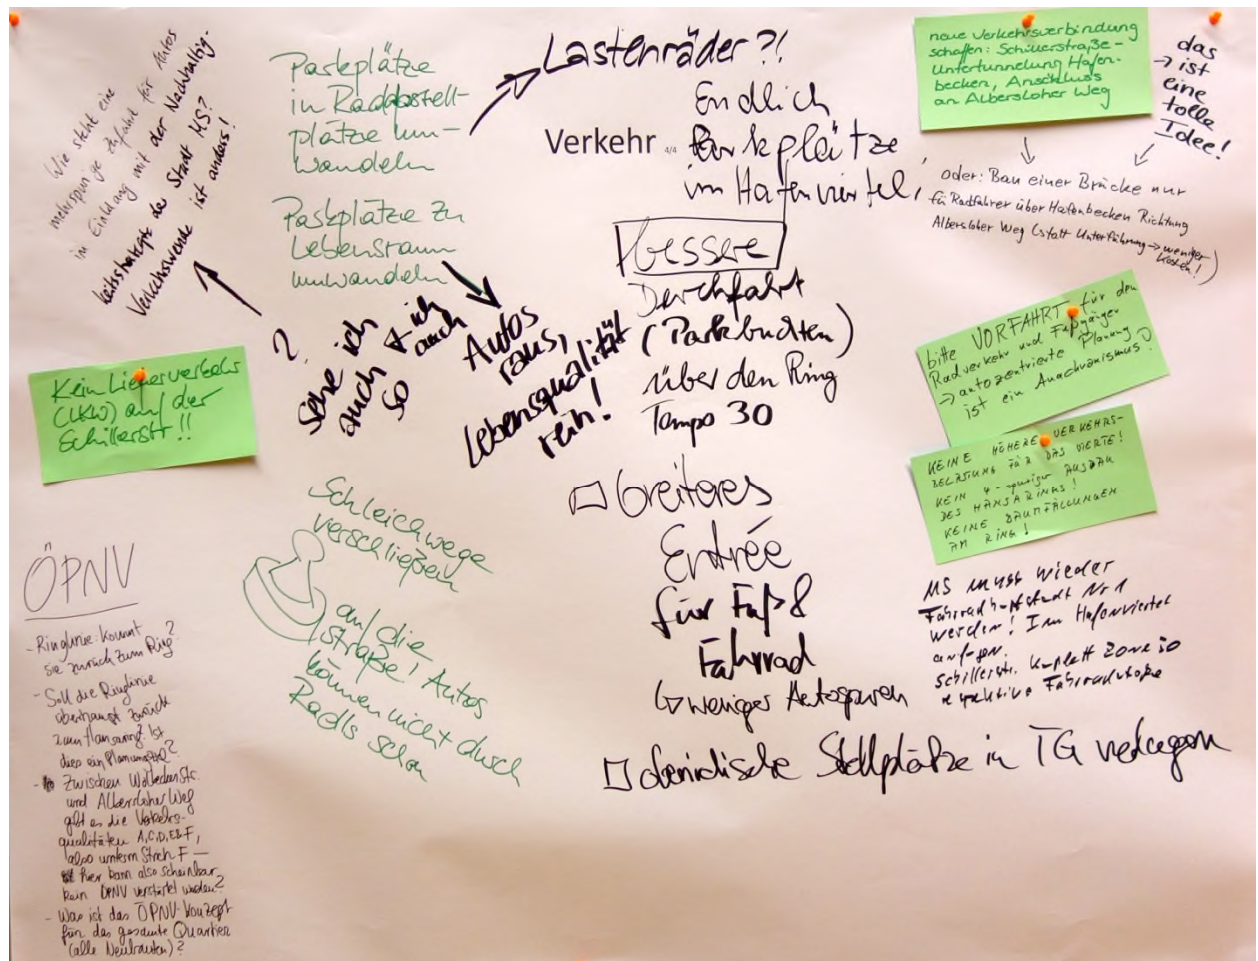 Wie steht eine
mehrspurige Zufahrt für Autos
in Einklang mit der Nachhaltig-
keitsstrategie der Stadt MS?
Verkehrswende ist anders!
Parkplätze
in Radabstell-
plätze um-
wandeln
Parkplätze zu
Lebensraum
umwandeln
Lastenräder?!
Verkehr 4/4
Endlich
Parkplätze
im Hafenviertel,
bessere
Durchfahrt
(Parkbuchten)
über den Ring
Tempo 30
neue Verkehrsverbindung
schaffen: Schillerstraße-
Untertunnelung Hafen-
becken, Anschluss
an Albersloher Weg
das
→ ist
eine
tolle
Idee!
oder: Bau einer Brücke nur
für Radfahrer über Hafenbecken Richtung
Albersloher Weg (statt Unterführung → weniger
Kosten!)
?
Sehe ich
auch
so
ich
auch
Autos
raus,
Lebensqualität
rein!
Kein Lieferverkehr
(LKW) auf der
Schillerstr!!
bitte VORFAHRT für den
Radverkehr und Fußgänger
→ autozentrierte Planung
ist ein Anachronismus!
KEINE HÖHERE VERKEHRS-
BELASTUNG FÜR DAS VIERTEL!
KEIN 4-spuriger AUSBAU
DES HANSARINGS!
KEINE BAUMFÄLLUNGEN
AM RING!
Schleichwege
verschließen
auf die
Straße! Autos
können nicht durch
Radls schon
□ breiteres
Entrée
für Fuß &
Fahrrad
↳ weniger Autospuren
□ oberirdische Stellplätze in TG verlagern
MS muss wieder
Fahrradhauptstadt Nr 1
werden! Im Hafenviertel
anfangen.
Schillerstr. komplett Zone 30
ÖPNV
- Ringlinie: Kommt
sie zurück zum Ring?
- Soll die Ringlinie
überhaupt zurück
zum Hansaring? Ist
dies ein Planungsziel?
- Zwischen Wolbecker Str.
und Albersloher Weg
gibt es die Verkehrs-
qualitäten A,C,D,E&F,
also unterm Strich F —
hier kann also scheinbar
kein ÖPNV verstärkt werden?
- Was ist das ÖPNV-Konzept
für das gesamte Quartier
(alle Neubauten)?